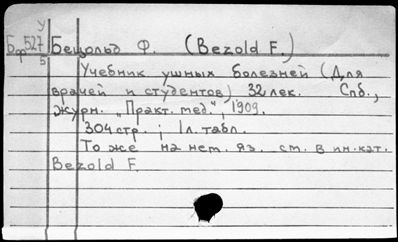 У
Бф527 Бецольд Ф. (Bezold F.)
5
Учебник ушных болезней (Для
врачей и студентов) 32 лек. Спб.,
журн. „Практ. мед.", 1909.
304 стр. ; 1л. табл.
То же на нем. яз. см. в ин. кат.
Bezold F.